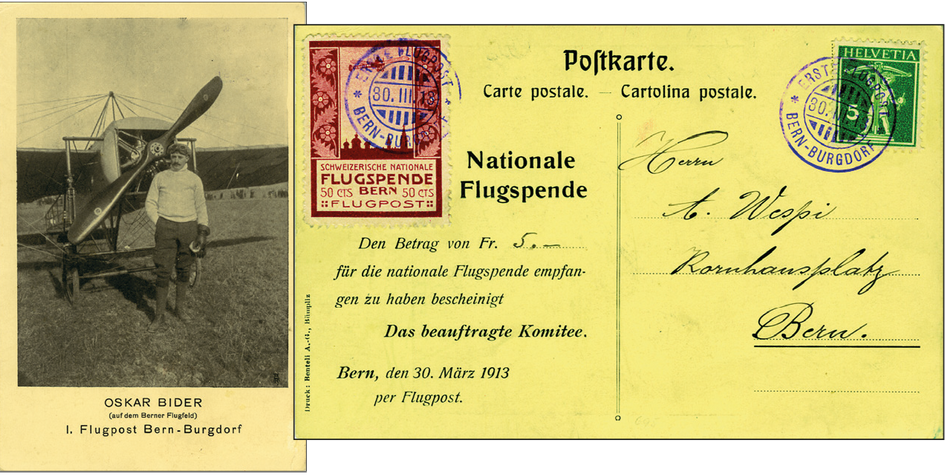 OSKAR BIDER
(auf dem Berner Flugfeld)
I. Flugpost Bern-Burgdorf
SCHWEIZERISCHE NATIONALE
FLUGSPENDE
50 CTS BERN 50 CTS
FLUGPOST
30. III. 13
BERN-BURGDORF
Postkarte.
Carte postale. — Cartolina postale.
Nationale
Flugspende
Den Betrag von Fr. 5.—
für die nationale Flugspende empfan-
gen zu haben bescheinigt
Das beauftragte Komitee.
Bern, den 30. März 1913
per Flugpost.
Druck: Benteli A.-G., Bümpliz
HELVETIA
5
ERSTE FLUGPOST
BERN-BURGDORF
Herrn
A. Wespi
Kornhausplatz
Bern.